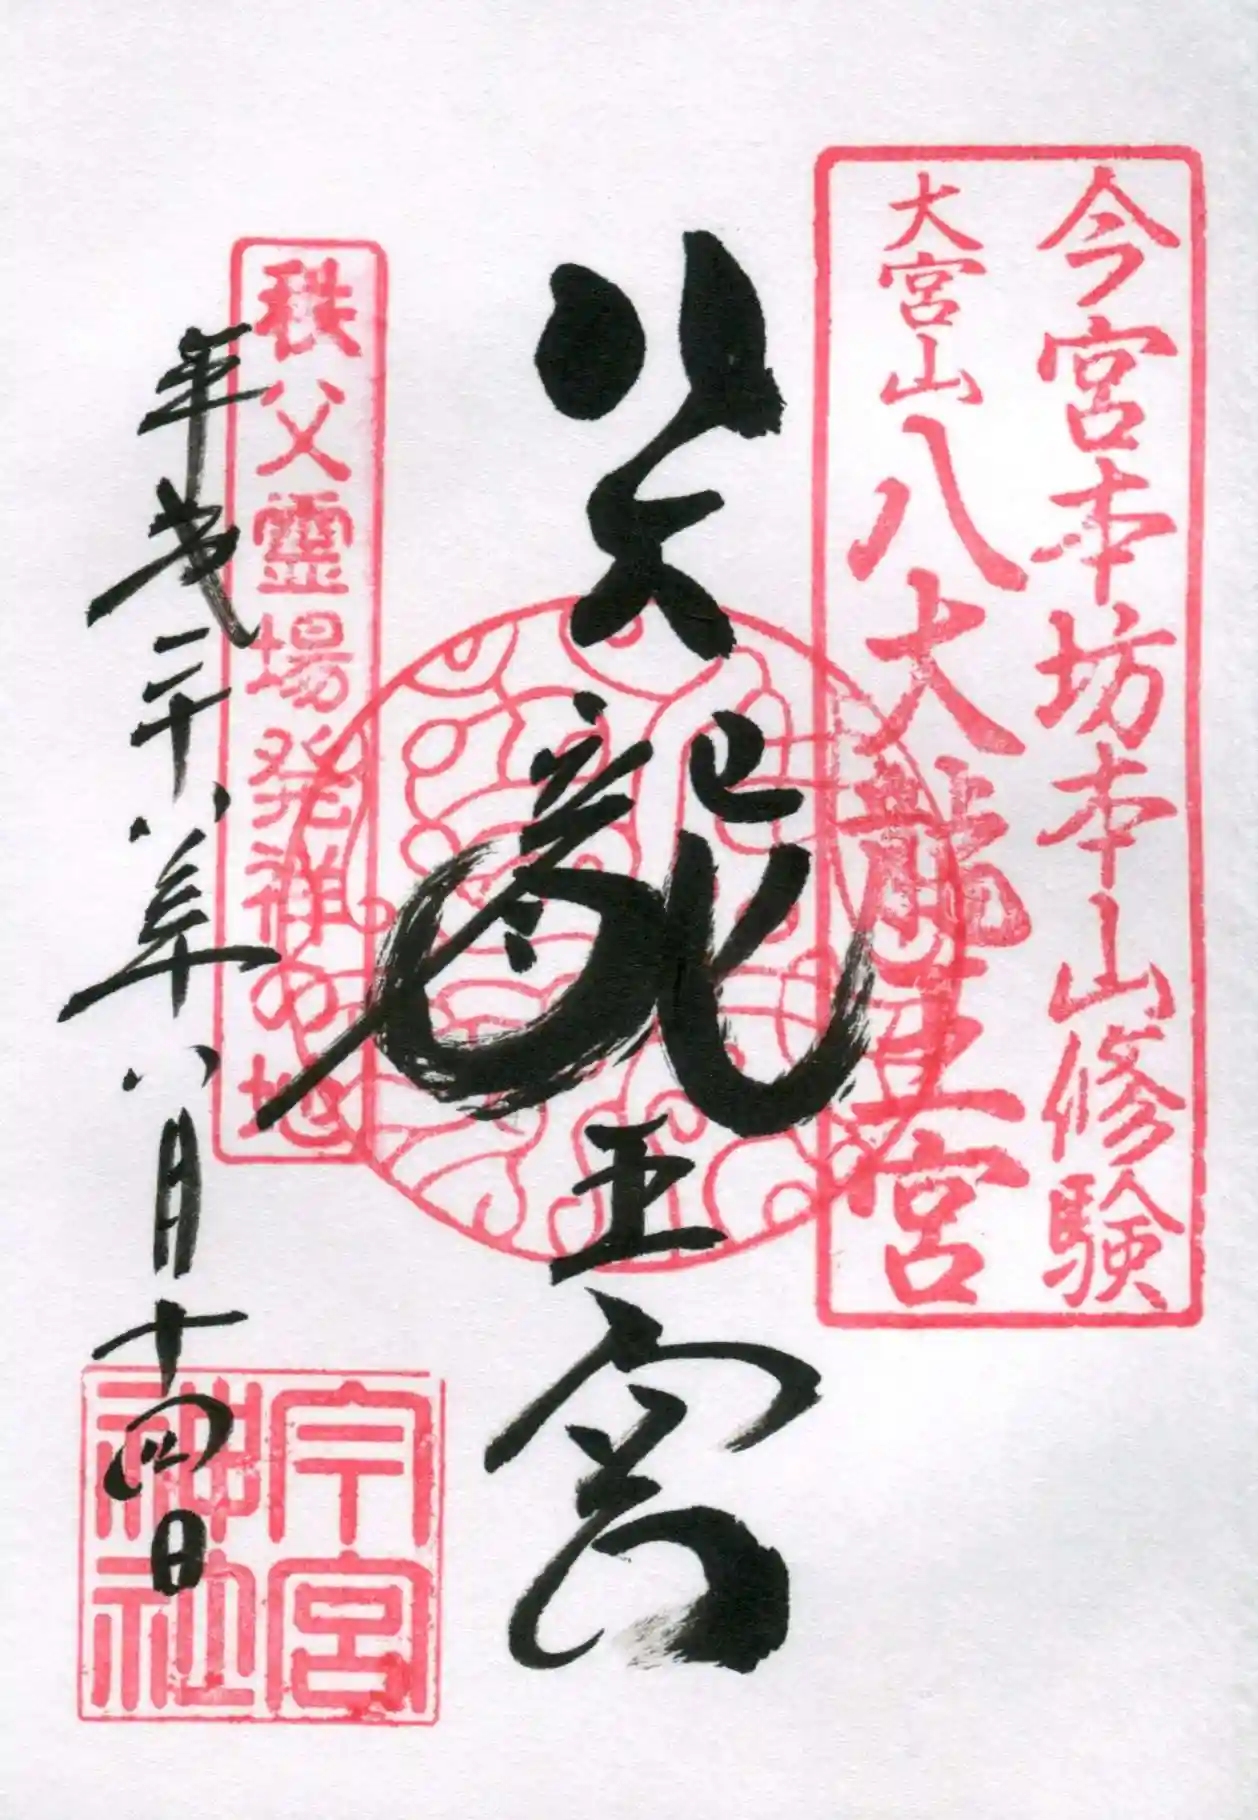 今宮本坊本山修験
大宮山八大龍王宮
八大龍王宮
秩父霊場発祥の地
平成二十八年八月十四日
今宮
神社